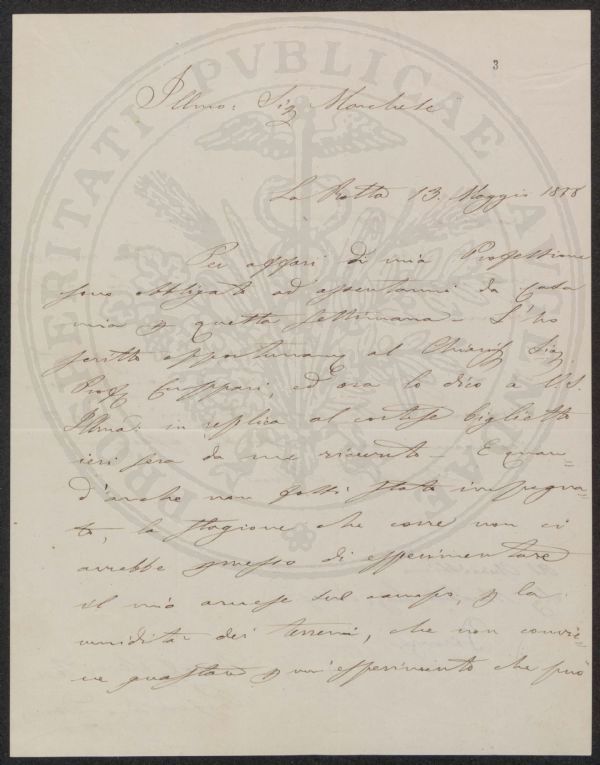 3
PROSPERITATI PVBLICAE AVGENDAE
Illmo: Sig Marchese
La Rotta 13. Maggio 1858
Per affari di mia Professione
sono obbligato ad assentarmi da Casa
mia p questa settimana - L'ho
scritto opportunam al Chiariss Sig
Prof Cuppari, ed ora lo dico a V.S.
Illma: in replica al cortese biglietto
ieri sera da me ricevuto - E quan=
d'anche non fossi stato impegna=
to, la stagione che corre non ci
avrebbe pmesso di esperimentare
il mio arnese sul campo, p la
umidità dei terreni, che non convie=
ne guastare p un'esperimento che può